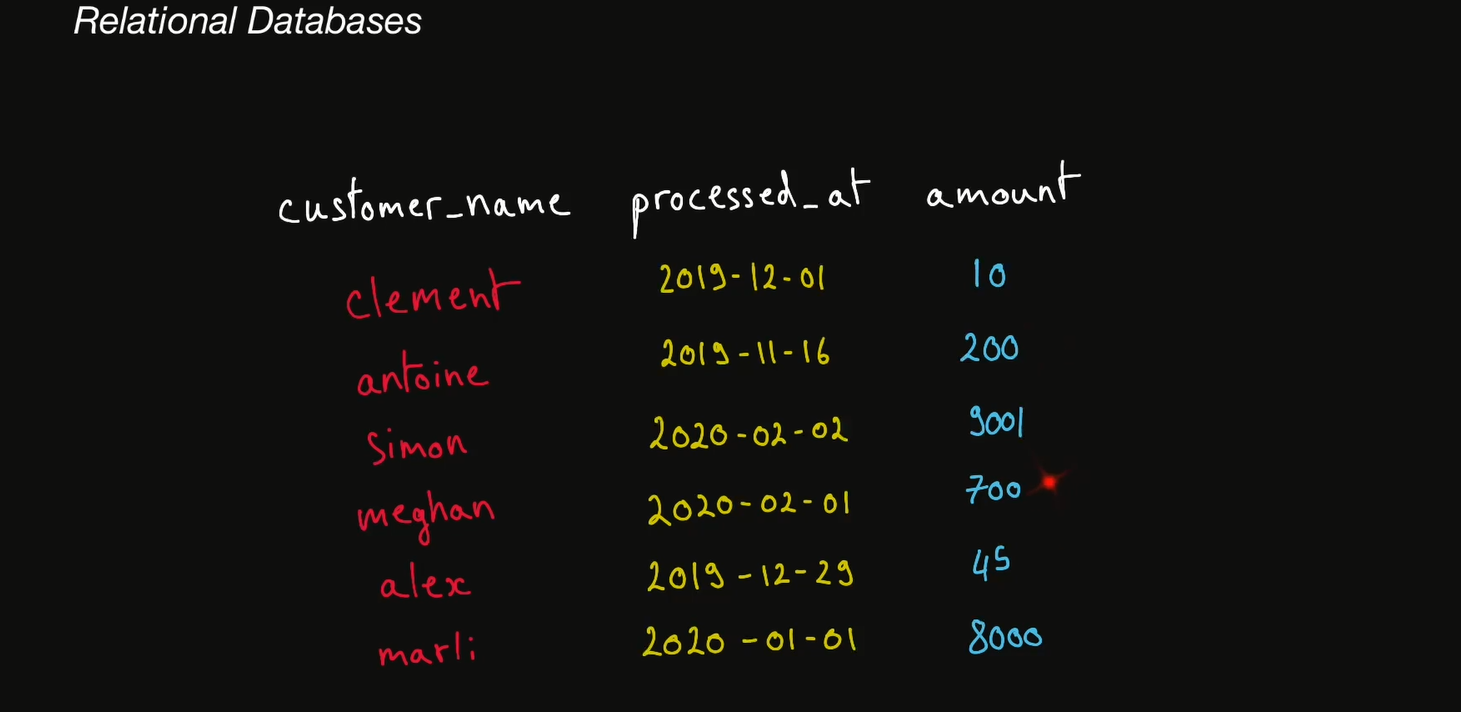 Relational Databases
customer_name processed_at amount
clement 2019-12-01 10
antoine 2019-11-16 200
simon 2020-02-02 9001
meghan 2020-02-01 700
alex 2019-12-29 45
marli 2020-01-01 8000